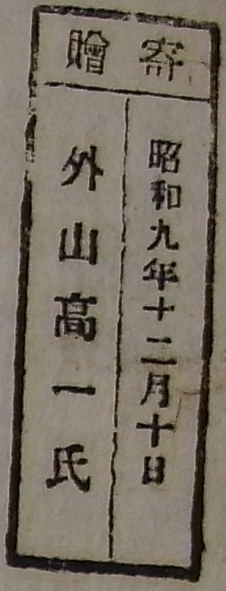 寄贈
昭和九年十二月十日
外山高一氏